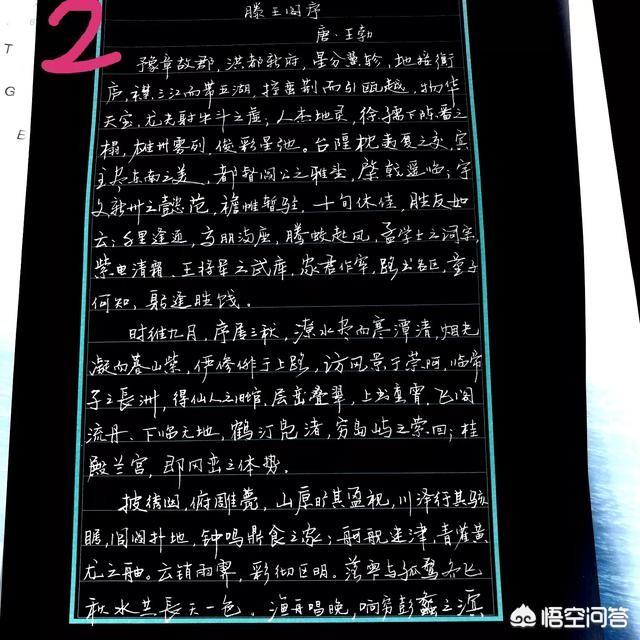 2
T
G
E
滕王阁序
唐·王勃
豫章故郡,洪都新府,星分翼轸,地接衡
庐,襟三江而带五湖,控蛮荆而引瓯越,物华
天宝,龙光射牛斗之虚,人杰地灵,徐孺下陈蕃之
榻,雄州雾列,俊彩星驰。台隍枕夷夏之交,宾
主尽东南之美,都督阎公之雅望,棨戟遥临;宇
文新州之懿范,襜帷暂驻,十旬休佳,胜友如
云;千里逢迎,高朋满座,腾蛟起凤,孟学士之词宗,
紫电清霜,王将军之武库,家君作宰,路出名区,童子
何知,躬逢胜饯。
时维九月,序属三秋,潦水尽而寒潭清,烟光
凝而暮山紫,俨骖騑于上路,访风景于崇阿,临帝
子之長洲,得仙人之旧馆,层峦叠翠,上出重霄,飞阁
流丹,下临无地,鹤汀凫渚,穷岛屿之萦回;桂
殿兰宫,即冈峦之体势。
披绣闼,俯雕甍,山原旷其盈视,川泽纡其骇
瞩,闾阎扑地,钟鸣鼎食之家;舸舰迷津,青雀黄
龙之舳。云销雨霁,彩彻区明。落霞与孤鹜齐飞
秋水共長天一色,渔舟唱晚,响穷彭蠡之滨
悟空问答